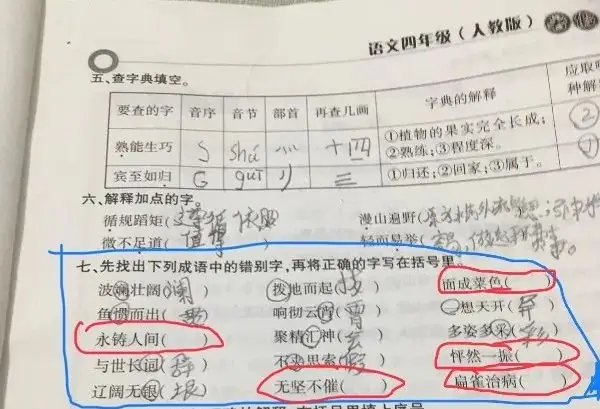 语文四年级(人教版)
五、查字典填空。
要查的字 音序 音节 部首 再查几画 字典的解释 应取
种解
熟能生巧 S shú 灬 十四 ①植物的果实完全长成;
②熟练;③程度深。 ②
宾至如归 G guī 三 ①归还;②回家;③属于。 ①
六、解释加点的字
循规蹈矩( ) 漫山遍野( )
微不足道( 值得 ) 轻而易举( )
七、先找出下列成语中的错别字,再将正确的字写在括号里
波澜壮阔( 澜 ) 拨地而起( 拔 ) 面成菜色( )
鱼惯而出( ) 响彻云宵( 霄 ) 想天开( 异 )
永铸人间( ) 聚精汇神( 会 ) 多姿多采( 彩 )
与世长词( 辞 ) 不思索( 假 ) 怦然一振( )
辽阔无银( 垠 ) 无坚不催( ) 扁雀治病( )